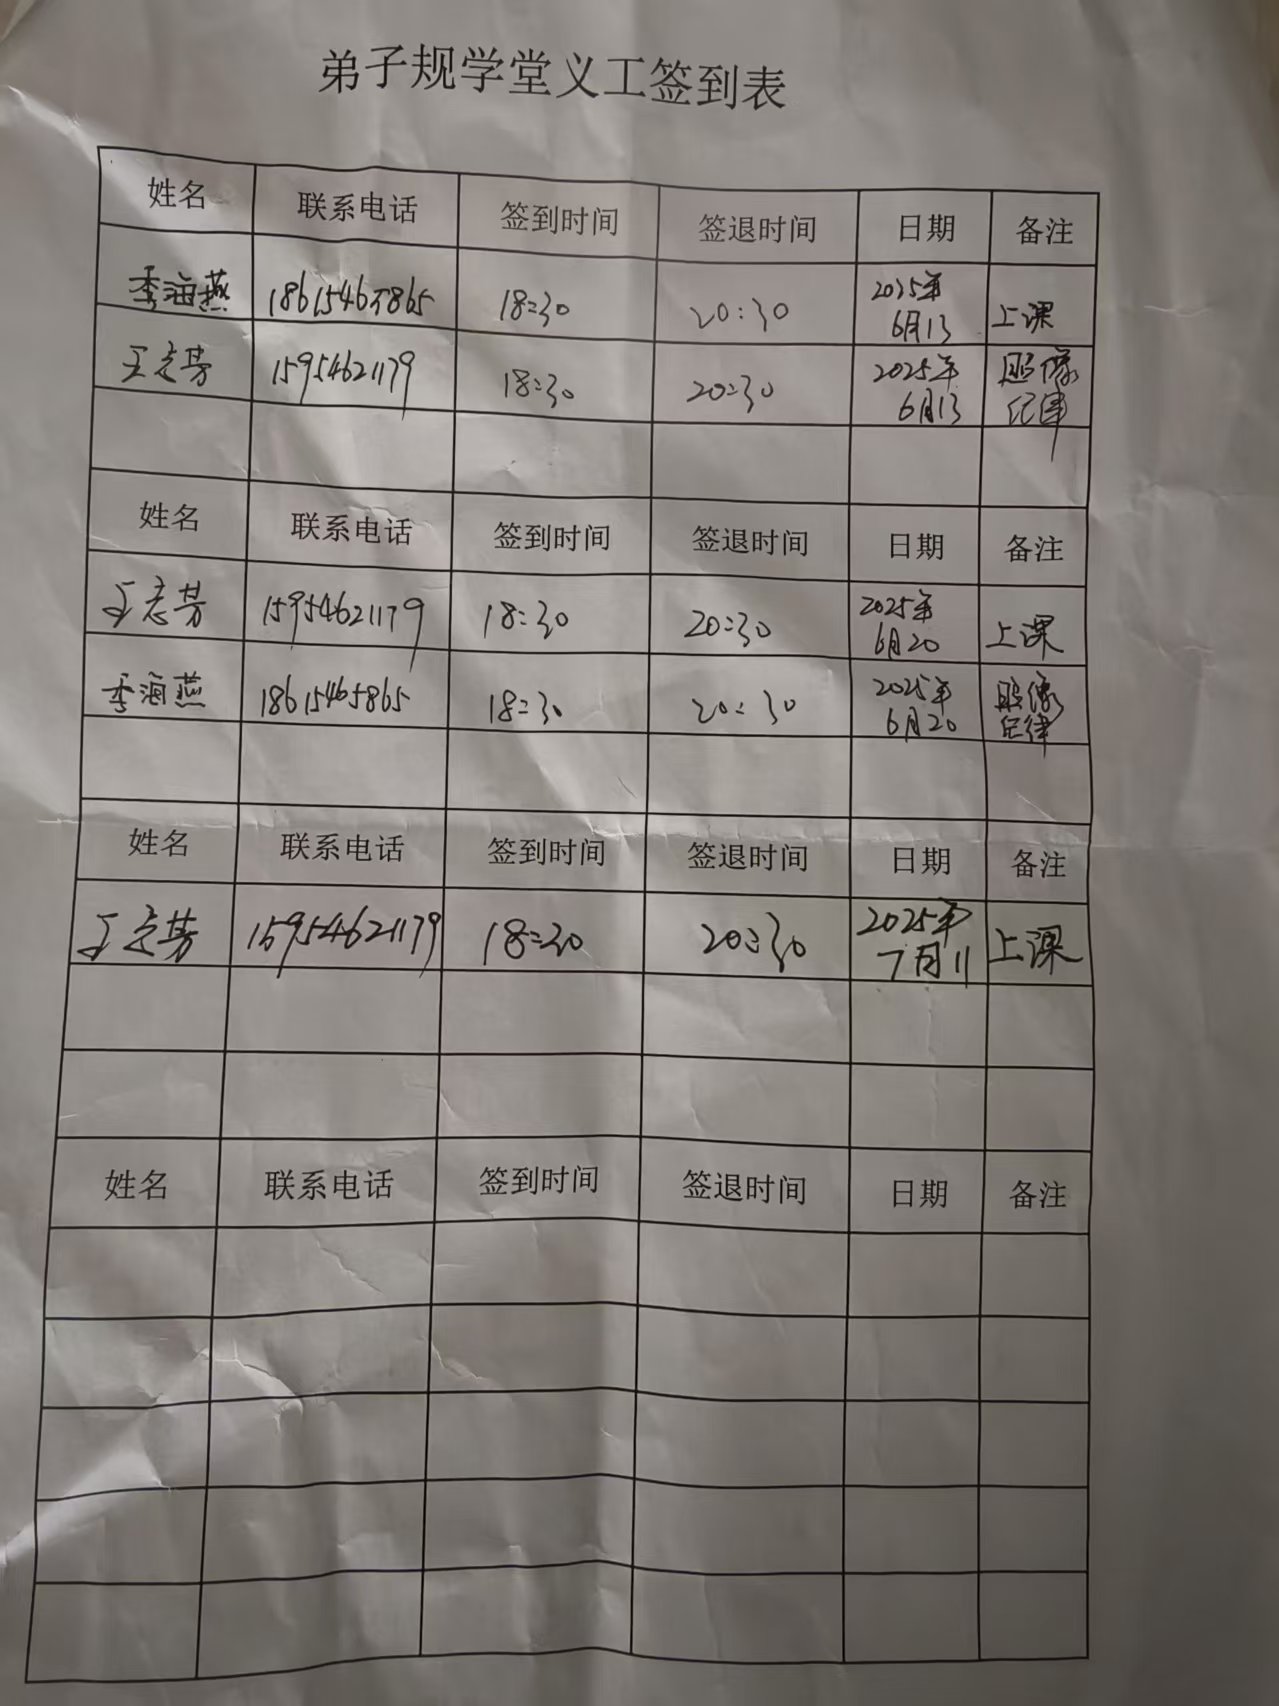 弟子规学堂义工签到表
姓名 联系电话 签到时间 签退时间 日期 备注
李海燕 18615465865 18:30 20:30 2025年6月13 上课
王志芳 15954621179 18:30 20:30 2025年6月13 照像纪律
姓名 联系电话 签到时间 签退时间 日期 备注
王志芳 15954621179 18:30 20:30 2025年6月20 上课
李海燕 18615465865 18:30 20:30 2025年6月20 照像纪律
姓名 联系电话 签到时间 签退时间 日期 备注
王志芳 15954621179 18:30 20:30 2025年7月11 上课
姓名 联系电话 签到时间 签退时间 日期 备注